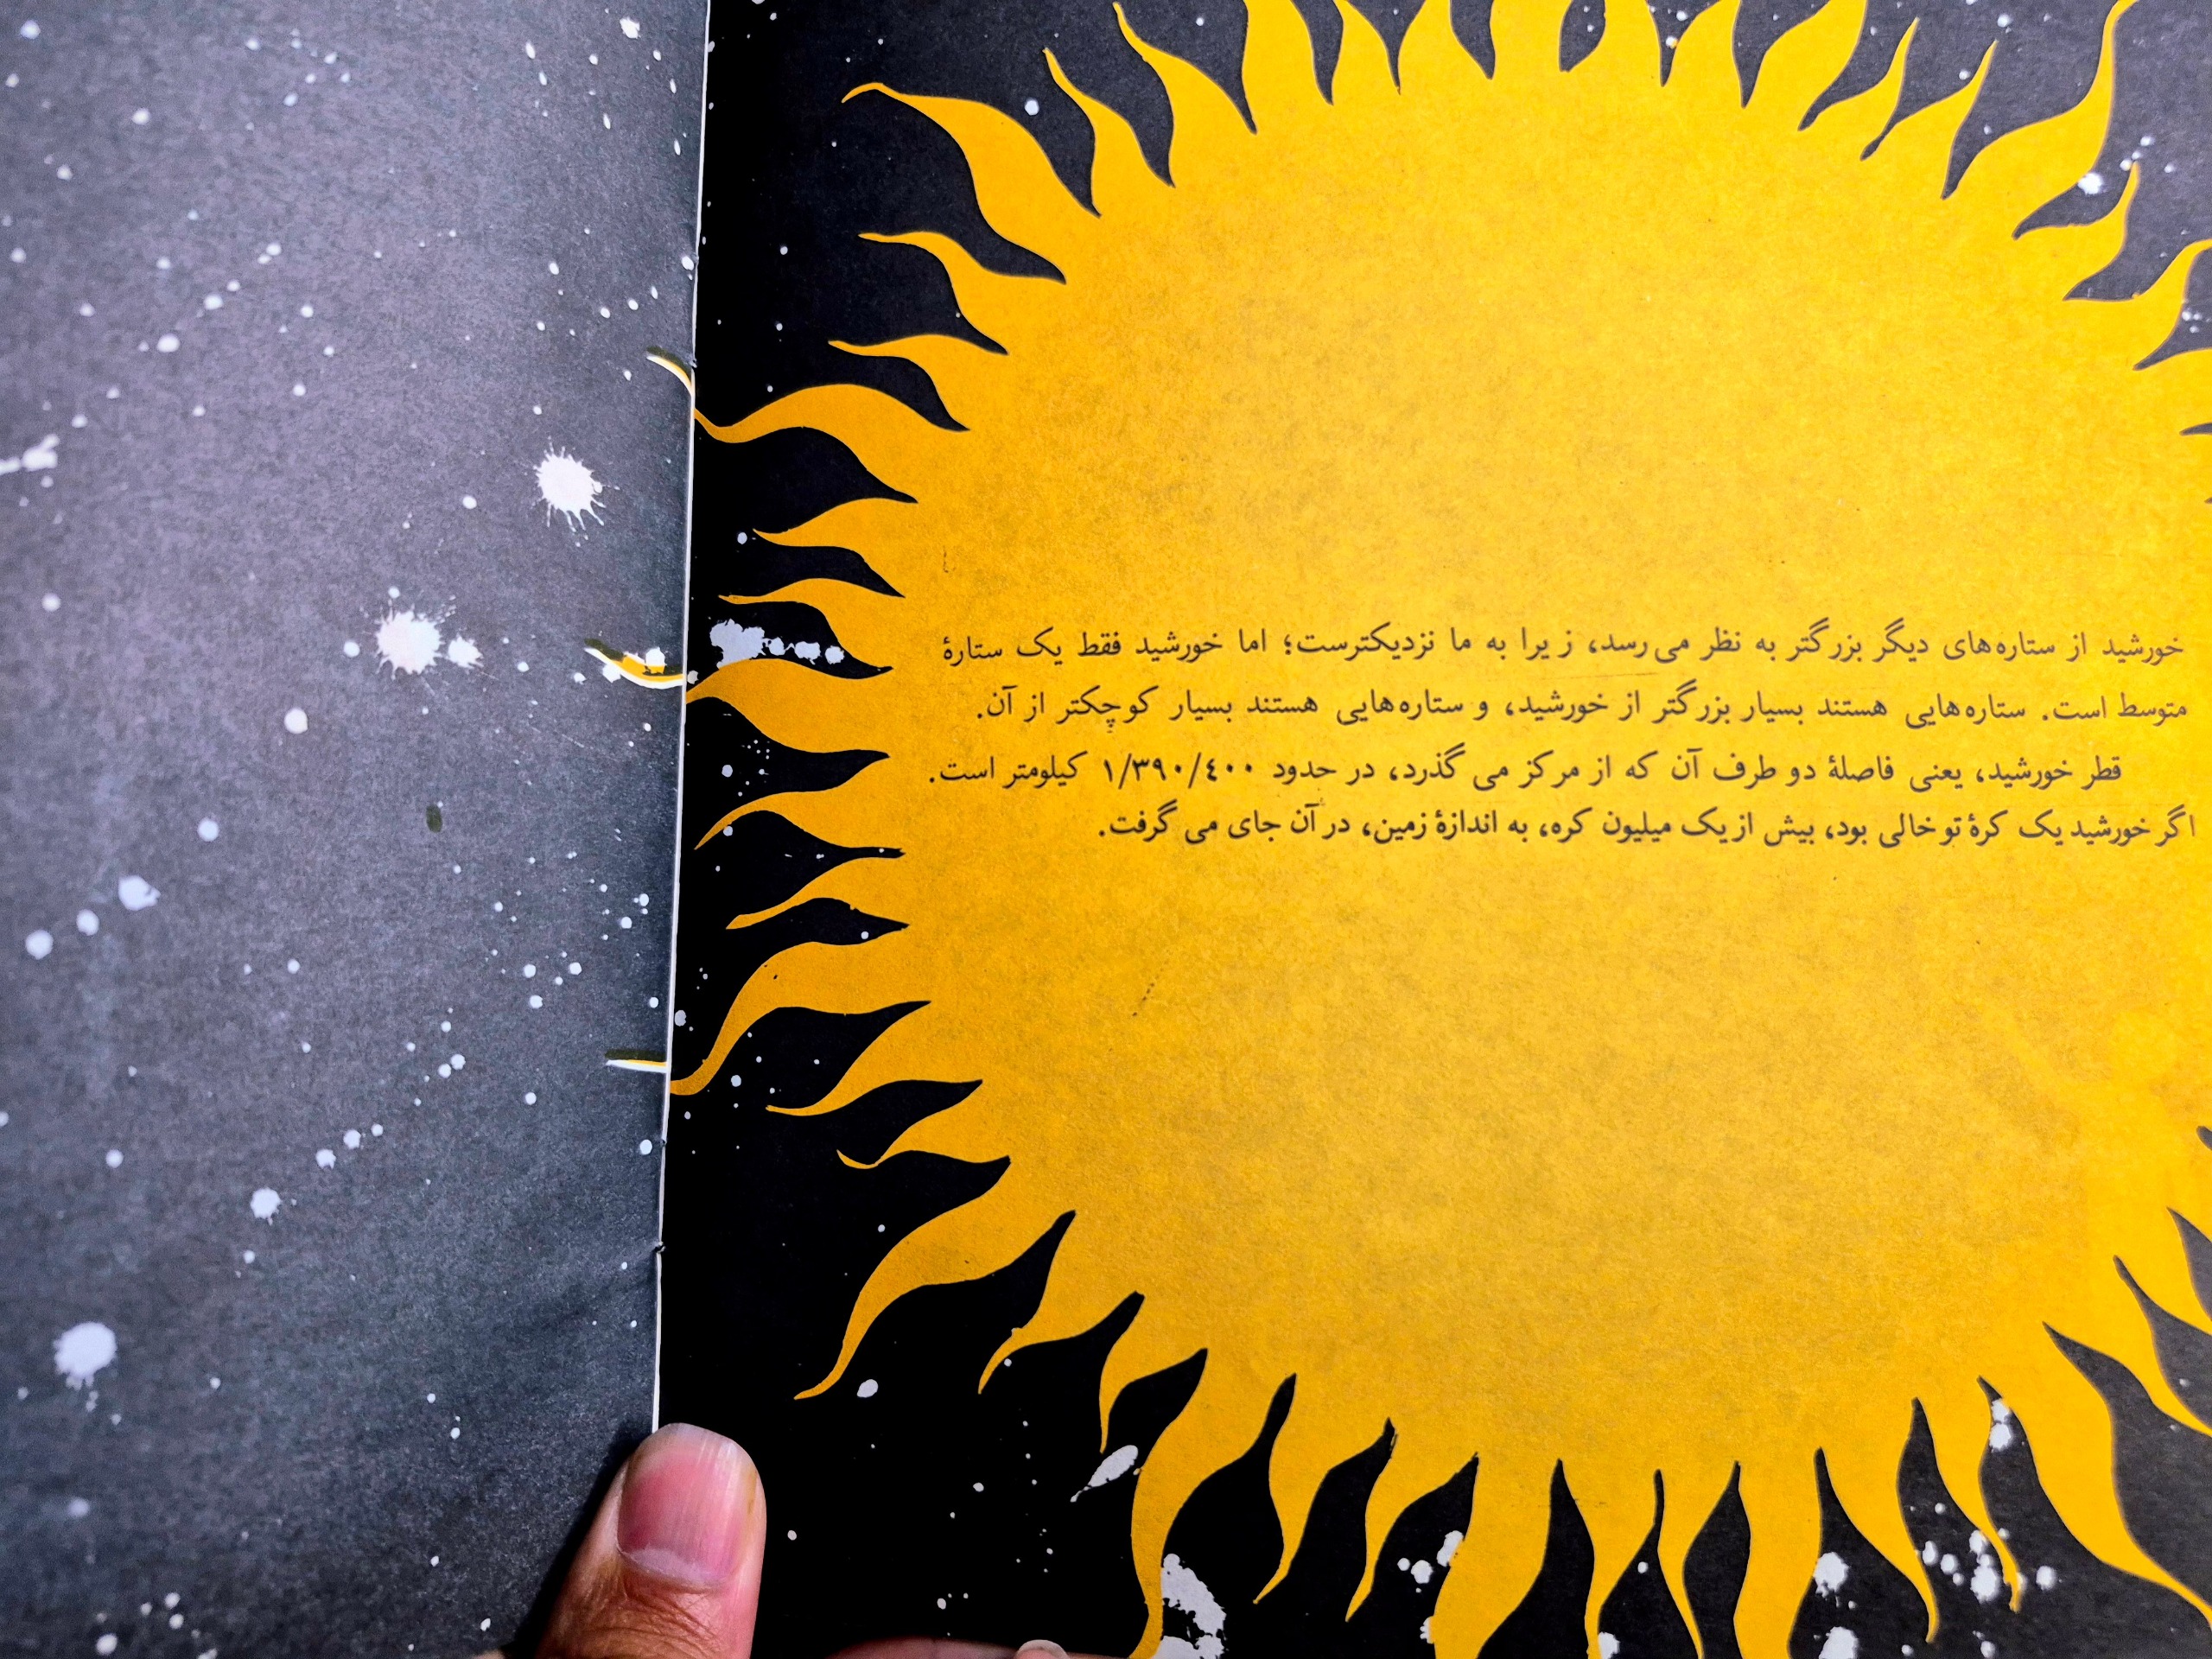 خورشید از ستاره‌های دیگر بزرگتر به نظر می‌رسد، زیرا به ما نزدیکترست؛ اما خورشید فقط یک ستارهٔ
متوسط است. ستاره‌هایی هستند بسیار بزرگتر از خورشید، و ستاره‌هایی هستند بسیار کوچکتر از آن.
قطر خورشید، یعنی فاصلهٔ دو طرف آن که از مرکز می گذرد، در حدود ۱/۳۹۰/٤۰۰ کیلومتر است.
اگر خورشید یک کرهٔ تو خالی بود، بیش از یک میلیون کره، به اندازهٔ زمین، در آن جای می گرفت.